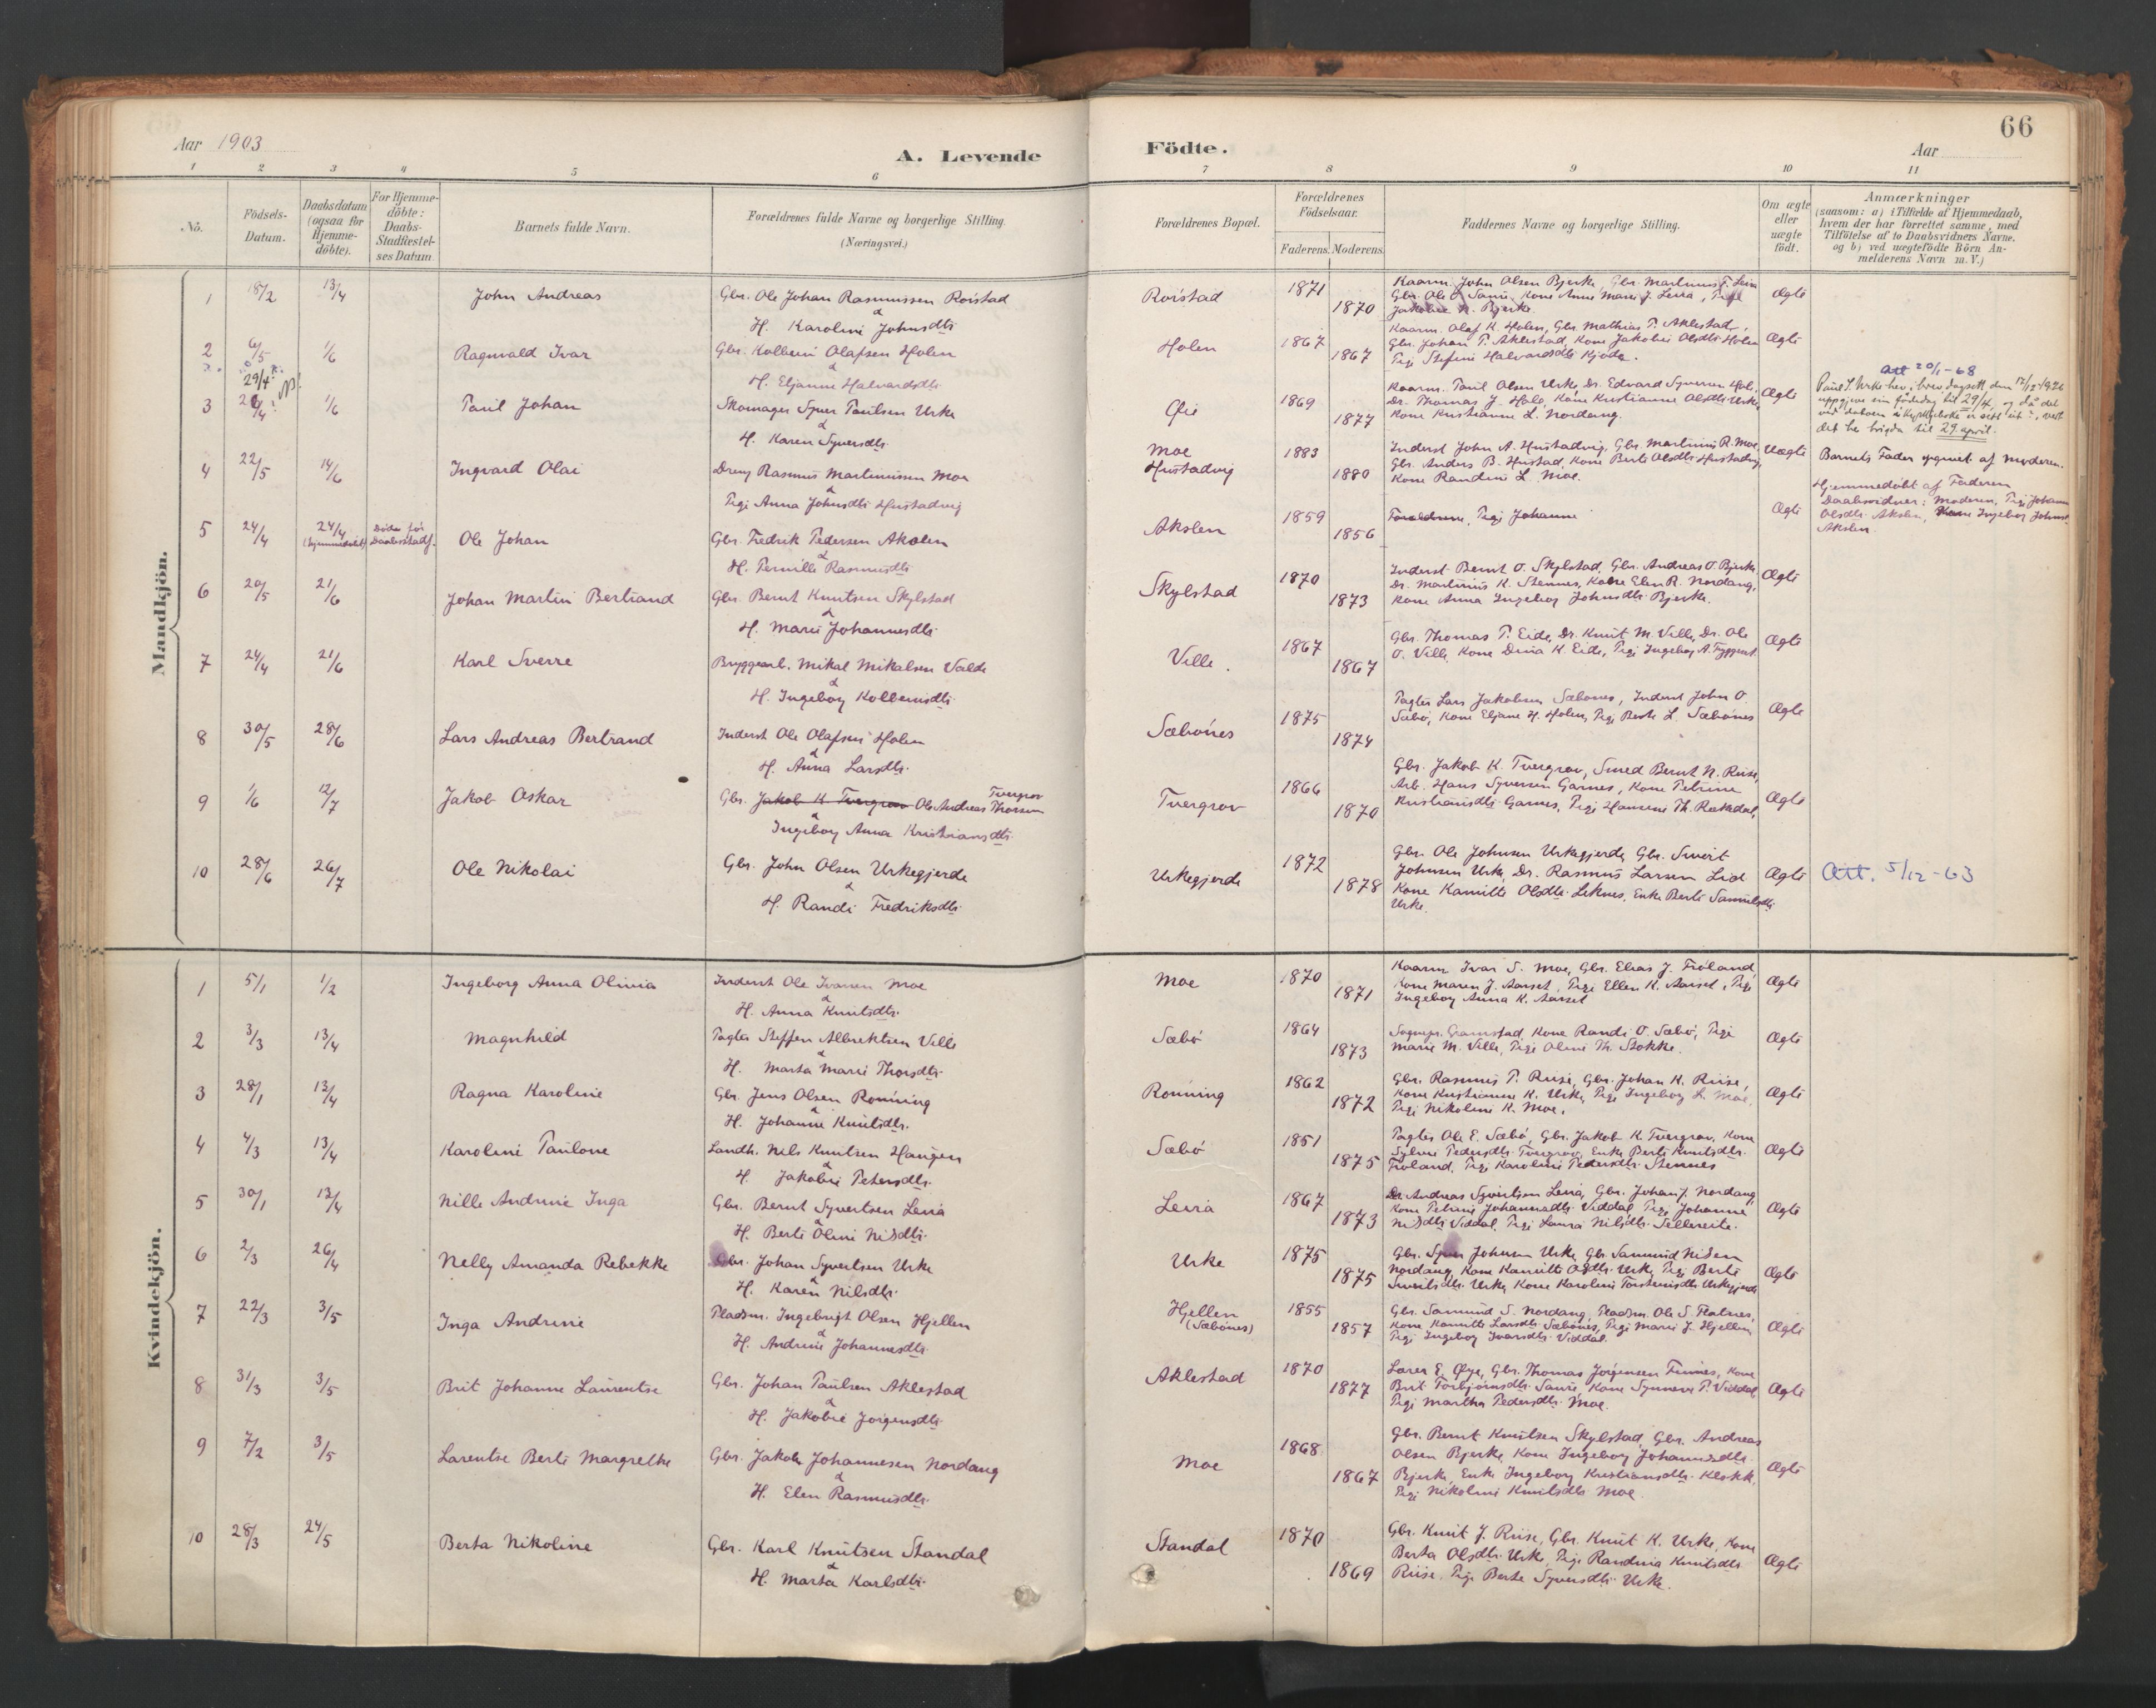 66
Aar 1903
A. Levende
Födte.
Aar
1 2 3 4 5 6 7 8 9 10 11
No.
Födsels-Datum.
Daabsdatum (ogsaa for Hjemme-döbte).
For Hjemme-döbte: Daabs-Stadfæstel-ses Datum
Barnets fulde Navn.
Forældrenes fulde Navne og borgerlige Stilling.
(Næringsvei.)
Forældrenes Bopæl.
Forældrenes Födselsaar.
Faderens. Moderens.
Faddernes Navne og borgerlige Stilling.
Om ægte eller uægte födt.
Anmærkninger
(saasom: a) i Tilfælde af Hjemmedaab,
hvem der har forrettet samme, med
Tilföielse af to Daabsvidners Navne.
og b) ved uægtefödte Börn An-
melderens Navn m. V.)
Mandkjön.
1 18/2 13/4 John Andreas Gbr. Ole Johan Rasmussen Roistad
&
H. Karoline Johnsdtr.
Roistad 1871 1870
Kaarm. John Olsen Bjerke, Gbr. Martinus T. Leira
Gbr. Ole O. Saure, Kone Anne Marie J. Leira, Pige
Jakobie K. Bjerke.
Ægte
2 6/5 1/6 Ragnvald Ivar Gbr. Kolbein Olafsen Holen
&
H. Eljanne Halvardsdtr.
Holen 1867 1867
Kaarm. Olaf K. Holen, Gbr. Mathias P. Aklestad,
Gbr. Johan P. Aklestad, Kone Jakobie Olsdtr. Holen
Pige Stefine Halvardsdtr. Kjode.
Ægte
3 29/4 1/6 Paul Johan Skomager Syver Paulsen Urke
&
H. Karen Syversdtr.
Øie 1869 1877
Kaarm. Paul Olsen Urke, Dr. Edvard Syversen Hole,
Dr. Thomas J. Hole, Kone Kristianne Olsdtr. Urke,
Kone Kristianne L. Nordang.
Ægte
Att 20/1-68
Paul S. Urke hev i brev dagsett den 17/12-1926
uppgjeve sin födedag til 29/4, og då det
ved datoen i kyrkjeboki er sett eit ?, vert
det her brigda til 29. april.
4 22/5 14/6 Ingvard Olai Dreng Rasmus Martinussen Moe
&
Pige Anna Johnsdtr. Hustadvig
Moe
Hustadvig 1883 1880
Inderst John A. Hustadvig, Gbr. Martinus R. Moe,
Gbr. Anders B. Hustad, Kone Berte Olsdtr. Hustadvig,
Kone Randine L. Moe.
Uægte
Barnets Fader opgivet af Moderen.
5 24/4 24/4 (hjemmedöbt) Döde för Daabsstadf. Ole Johan Gbr. Fredrik Pedersen Akslen
&
H. Pernille Rasmusdtr.
Akslen 1859 1856
Forældrene, Pige Johanne
Ægte
Hjemmedöbt af Faderen
Daabsvidner: Moderen, Pige Johanne
Olsdtr. Akslen, Kone Ingeborg Johnsd.
Akslen.
6 20/5 21/6 Johan Martin Bertrand Gbr. Bernt Knutsen Skylstad
&
H. Marie Johannesdtr.
Skylstad 1870 1873
Inderst Bernt O. Skylstad, Gbr. Andreas O. Bjerke
Dr. Martinus K. Stennes, Kone Elen R. Nordang,
Kone Anna Ingeborg Johnsdtr. Bjerke.
Ægte
7 24/4 21/6 Karl Sverre Bryggearb. Mikal Mikalsen Valde
&
H. Ingeborg Kolbeinsdtr.
Ville. 1867 1867
Gbr. Thomas P. Eide, Dr. Knut M. Ville, Dr. Ole
O. Ville, Kone Dina K. Eide, Pige Ingeborg A.
Ægte
8 30/5 28/6 Lars Andreas Bertrand Inderst Ole Olafsen Holen
&
H. Anna Larsdtr.
Sæbönes 1875 1874
Pagter Lars Jakobsen Sæbönes, Inderst John O.
Sæbö, Kone Eljane H. Holen, Pige Berte L. Sæbönes
Ægte
9 1/6 12/7 Jakob Oskar Gbr. Jakob K Tvergrov Ole Andreas Thorsen Tvergrov
&
Ingeborg Anna Kristiansdtr.
Tvergrov 1866 1870
Gbr. Jakob K. Tvergrov, Smed Bernt N. Riise,
Arb. Hans Syversen Garnes, Kone Petrine
Kristiansdtr. Garnes, Pige Hansine Th. Rækdal,
Ægte
10 28/6 26/7 Ole Nikolai Gbr. John Olsen Urkegjerde
&
H. Randi Fredriksdtr.
Urkegjerde 1872 1878
Gbr. Ole Johnsen Urkegjerde, Gbr. Sivert
Johnsen Urke, Dr. Rasmus Larsen Lid
Kone Kamille Olsdtr. Leknes, Enke Berte Samuelsdtr.
Urke.
Ægte
Att. 5/12-63
Kvindekjön.
1 5/1 1/2 Ingeborg Anna Olivia Inderst Ole Ivarsen Moe
&
H. Anna Knutsdtr.
Moe 1870 1871
Kaarm. Ivar S. Moe, Gbr. Elias J. Fröland,
Kone Maren J. Aarset, Pige Ellen K. Aarset, Pige
Ingeborg Anna K. Aarset
Ægte
2 3/3 13/4 Magnhild Pagter Steffen Albrektsen Ville
&
H. Marta Marie Thorsdtr.
Sæbö 1864 1873
Sognepr. Gramstad, Kone Randi O. Sæbö, Pige
Marie M. Ville, Pige Oline Th. Stokke.
Ægte
3 28/1 13/4 Ragna Karoline Gbr. Jens Olsen Rönning
&
H. Johanne Knutsdtr.
Rönning 1862 1872
Gbr. Rasmus P. Riise, Gbr. Johan K. Riise,
Kone Kristianne K. Urke, Pige Ingeborg L. Moe,
Pige Nikoline K. Moe.
Ægte
4 4/3 13/4 Karoline Paulone Landh. Nils Knutsen Haugen
&
H. Jakobie Petersdtr.
Sæbö 1851 1875
Pagter Ole E. Sæbö, Gbr. Jakob K. Tvergrov, Kone
Sylvie Pedersdtr. Tvergrov, Enke Berte Knutsdtr.
Fröland, Pige Karoline Pedersdtr. Stennes
Ægte
5 30/1 13/4 Nille Andrine Inga Gbr. Bernt Syvertsen Leira
&
H. Berte Oline Nilsdtr.
Leira 1867 1873
Dr. Andreas Syvertsen Leira, Gbr. Johan J. Nordang,
Kone Petrine Johannesdtr. Viddal, Pige Johanne
Nilsdtr. Viddal, Pige Laura Nilsdtr. Sellereite.
Ægte
6 2/3 26/4 Nelly Amanda Rebekke Gbr. Johan Syvertsen Urke
&
H. Karen Nilsdtr.
Urke 1875 1875
Gbr. Syver Johnsen Urke, Gbr. Samund Nilsen
Nordang, Kone Kamille Olsdtr. Urke, Pige Berte
Sivertsdtr. Urke, Kone Karoline Torsteinsdtr. Urkegjerde
Ægte
7 22/3 3/5 Inga Andrine Pladsm. Ingebrigt Olsen Hjellen
&
H. Andrine Johannesdtr.
Hjellen
(Sæbönes) 1855 1857
Gbr. Samund S. Nordang, Pladsm. Ole S. Flatnes,
Kone Kamille Larsdtr. Sæbönes, Pige Marie J. Hjellen,
Pige Ingeborg Ivarsdtr. Viddal.
Ægte
8 31/3 3/5 Brit Johanne Laurentse Gbr. Johan Paulsen Aklestad
&
H. Jakobie Jörgensdtr.
Aklestad 1870 1877
Lærer E. Øye, Gbr. Thomas Jörgensen Finnes, Kone
Brit Torbjörnsdtr. Saure, Kone Synneve P. Viddal,
Pige Martha Pedersdtr. Moe.
Ægte
9 7/2 3/5 Larentse Berte Margrethe Gbr. Jakob Johannesen Nordang
&
H. Elen Rasmusdtr.
Moe 1868 1867
Gbr. Bernt Knutsen Skylstad, Gbr. Andreas
Olsen Bjerke, Kone Ingeborg Johannesdtr.
Bjerke, Enke Ingeborg Kristiansdtr. Klokk,
Pige Nikoline Knutsdtr. Moe.
Ægte
10 28/3 24/5 Berta Nikoline Gbr. Karl Knutsen Standal
&
H. Marta Karlsdtr.
Standal 1870 1869
Gbr. Knut J. Riise, Gbr. Knut K. Urke, Kone
Berta Olsdtr. Urke, Pige Randine Knutsdtr.
Riise, Pige Berte Syversdtr. Urke.
Ægte